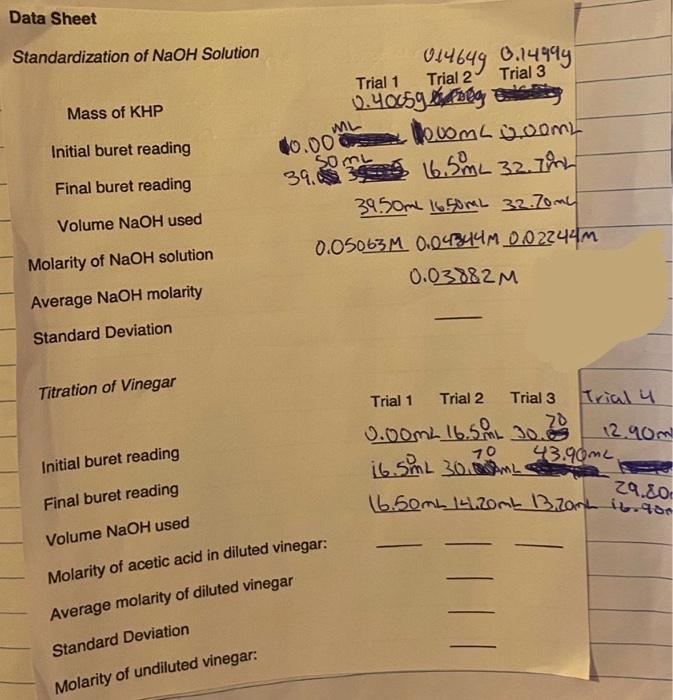 Data Sheet
Standardization of NaOH Solution
0.1464g 0.1499g
Trial 1 Trial 2 Trial 3
Mass of KHP 0.4005g
Initial buret reading 0.00 mL 0.00mL 0.00mL
Final buret reading 39.50mL 16.50mL 32.70mL
Volume NaOH used 39.50mL 16.50mL 32.70mL
Molarity of NaOH solution 0.05063M 0.04344M 0.02244M
Average NaOH molarity 0.03882M
Standard Deviation
Titration of Vinegar
Trial 1 Trial 2 Trial 3 Trial 4
Initial buret reading 0.00mL 16.50mL 30.70 12.90m
Final buret reading 16.50mL 30.70mL 43.90mL 29.80
Volume NaOH used 16.50mL 14.20mL 13.20mL 16.90m
Molarity of acetic acid in diluted vinegar:
Average molarity of diluted vinegar
Standard Deviation
Molarity of undiluted vinegar: